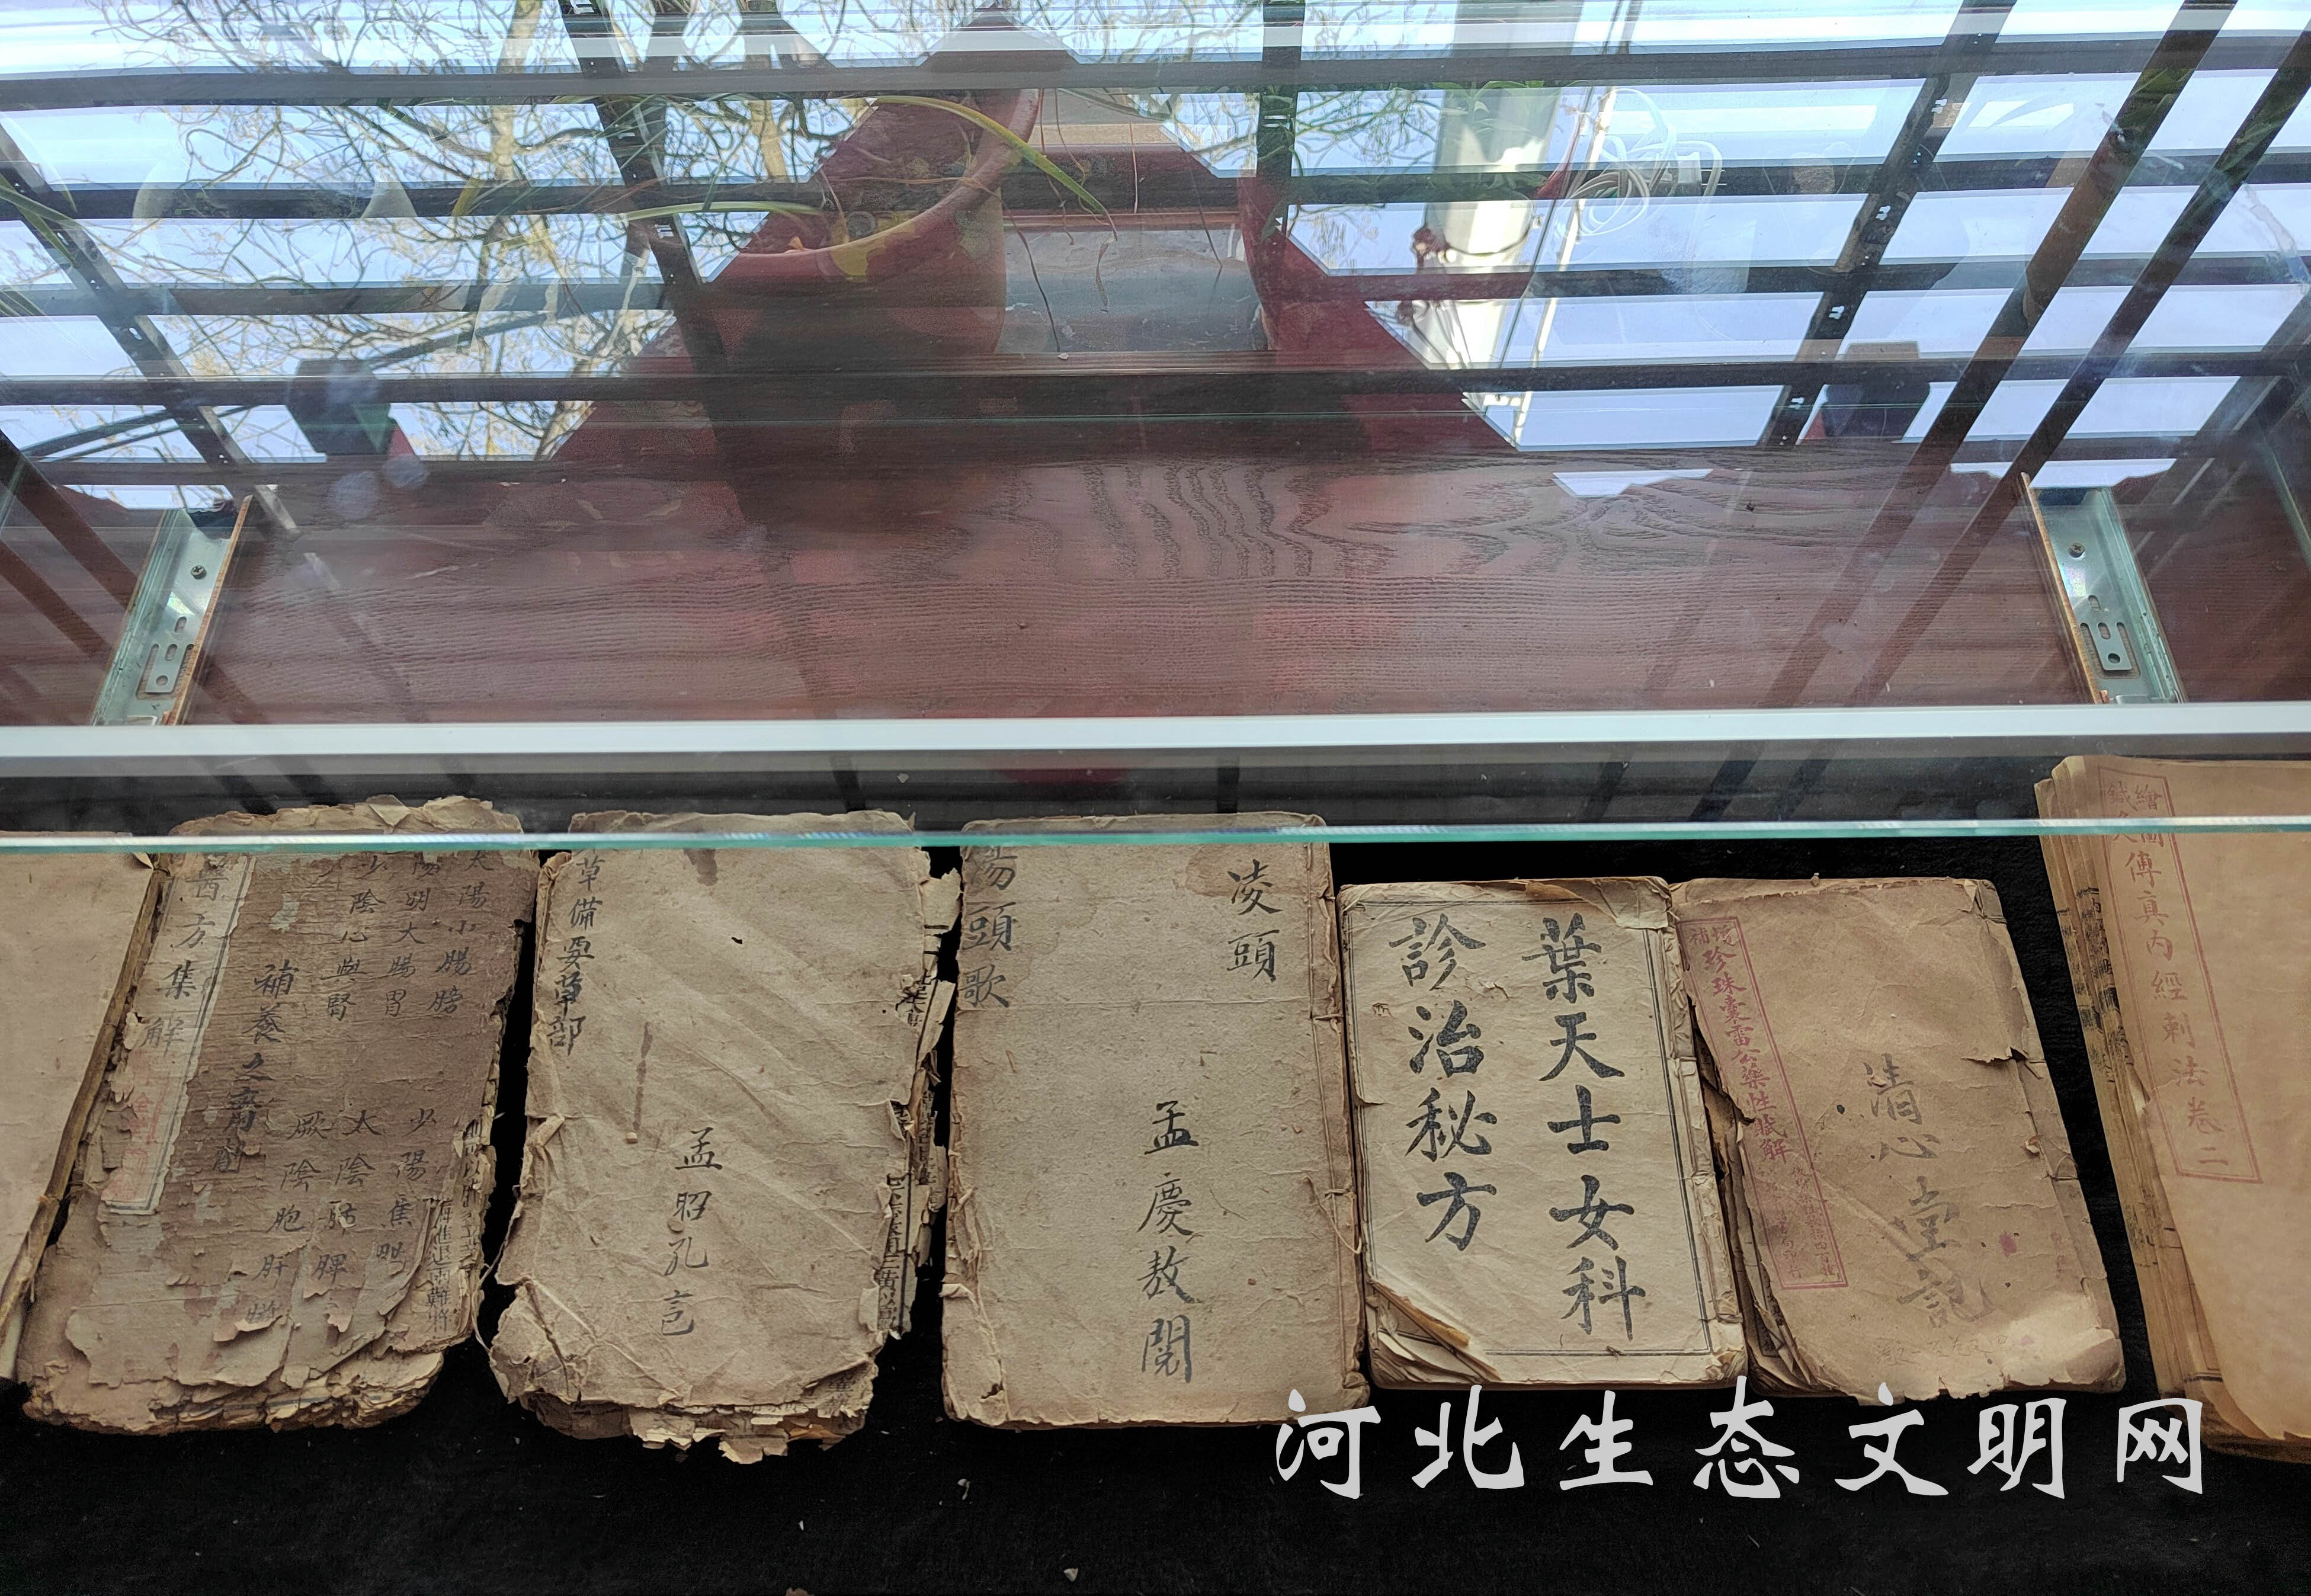 醫方集解
補養之劑
太陽小腸膀
陽明大腸胃
少陰心與腎
少陽焦
太陰肺脾
厥陰胞肝
草備要草部
孟昭孔言
湯頭歌
凌頭
孟慶敖閱
葉天士女科
診治秘方
珍珠囊雷公藥性賦解
清心堂記
繪圖
傳真內經刺法卷二
河北生态文明网